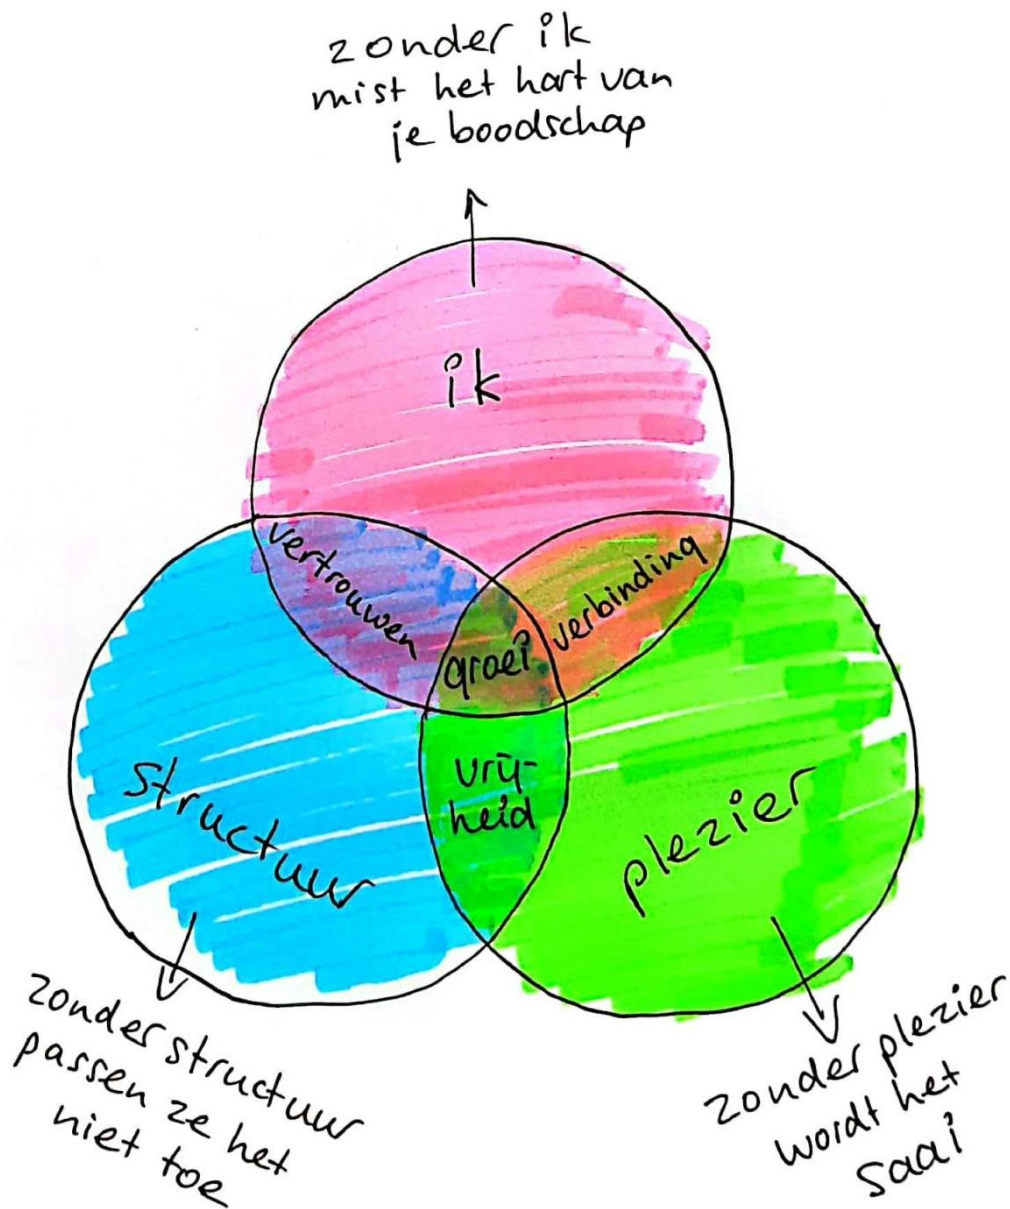 zonder ik
mist het hart van
je boodschap
ik
vertrouwen
verbinding
groei
vrij-
heid
structuur
plezier
zonder structuur
passen ze het
niet toe
zonder plezier
wordt het
saai